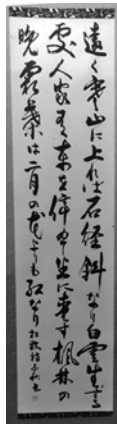 遠く寒山に上れば石経斜なり白雲生ずる
処人家有り車を停めて坐に愛す楓林の
晩霜葉は二月の花よりも紅なり 杜牧詩